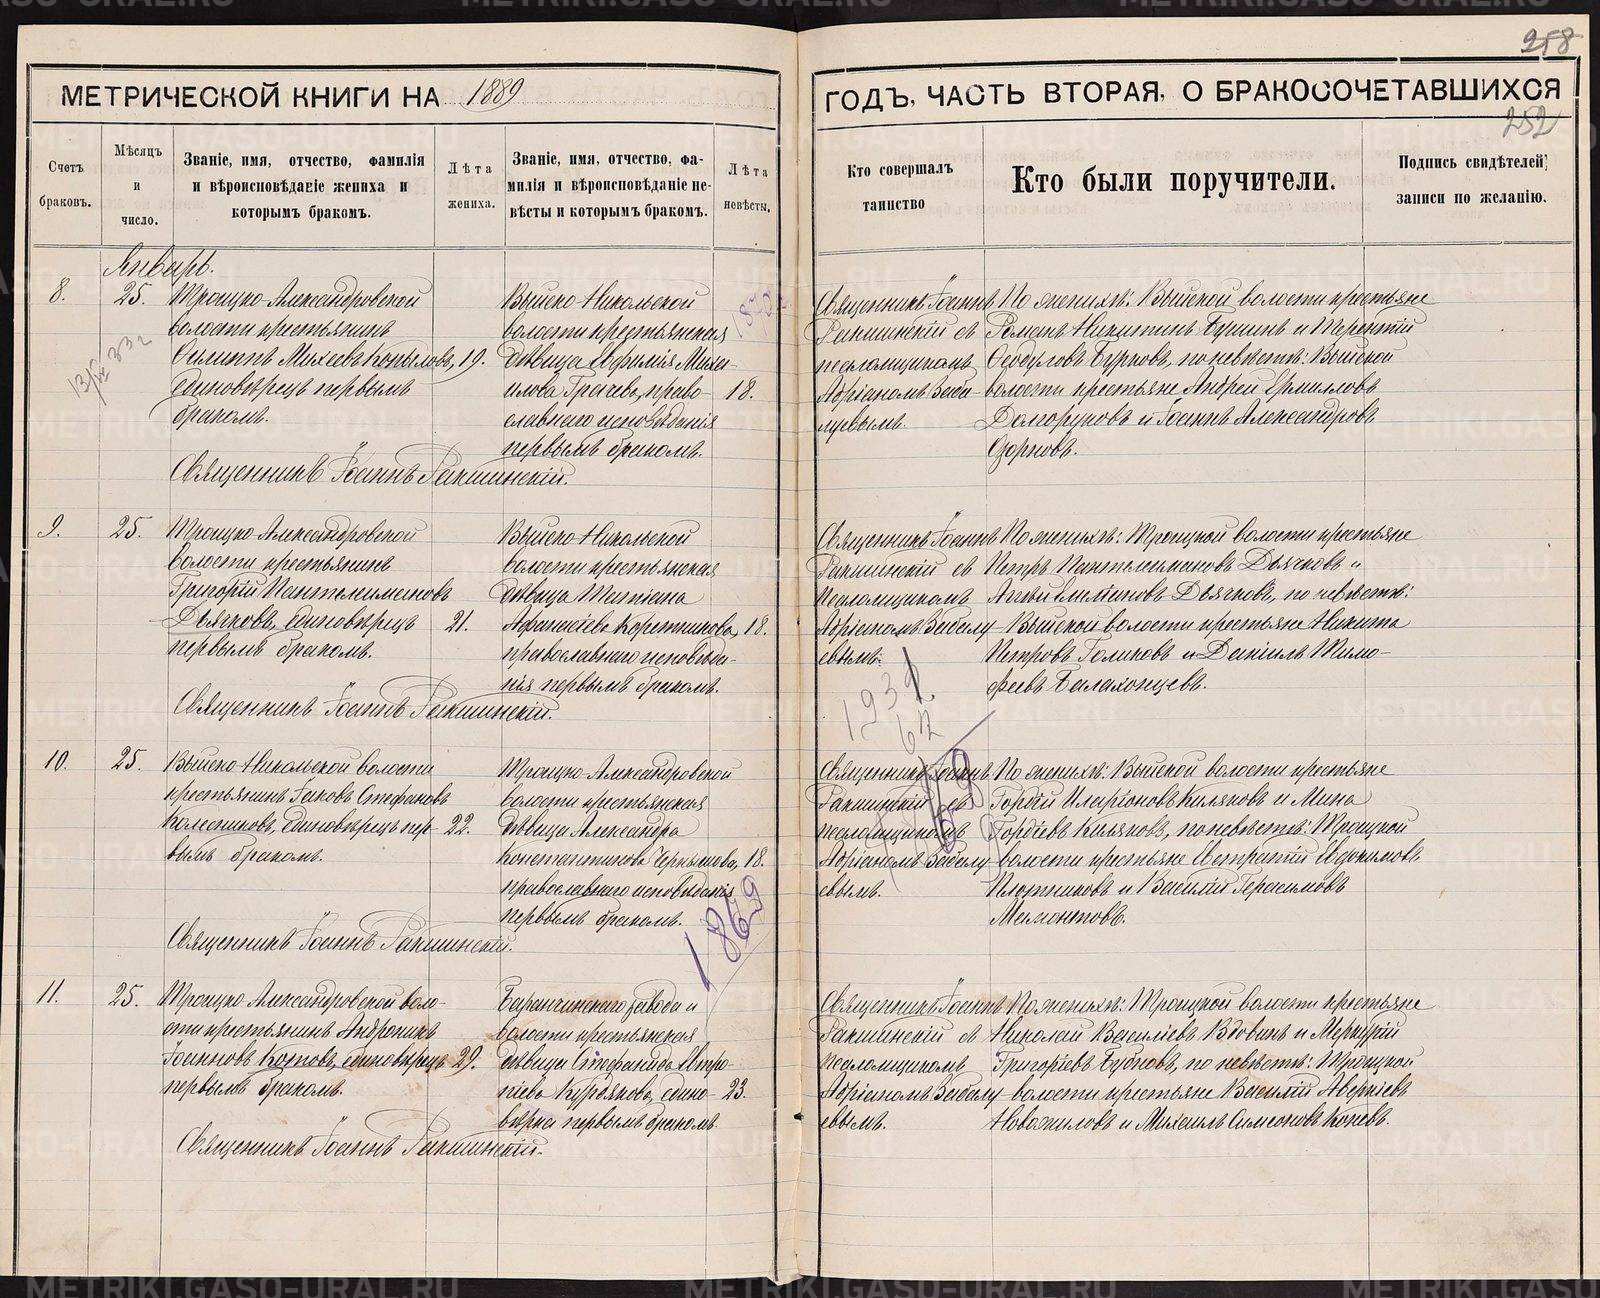 258
МЕТРИЧЕСКОЙ КНИГИ НА 1889
ГОДЪ, ЧАСТЬ ВТОРАЯ, О БРАКОСОЧЕТАВШИХСЯ
252
Счетъ браковъ.
Мѣсяцъ и число.
Званіе, имя, отчество, фамилія
и вѣроисповѣданіе жениха и
которымъ бракомъ.
Лѣта жениха.
Званіе, имя, отчество, фа-
милія и вѣроисповѣданіе не-
вѣсты и которымъ бракомъ.
Лѣта невѣсты.
Кто совершалъ
таинство
Кто были поручители.
Подпись свидѣтелей
записи по желанію.
Январь.
8.
25.
Троицко-Александровской
волости крестьянинъ
Филиппъ Михеевъ Копыловъ, 19.
единовѣрецъ первымъ
бракомъ.
Выйско-Никольской
волости крестьянская
дѣвица Евфимія Михаи-
лова Грачева, право- 18.
славнаго исповѣданія
первымъ бракомъ.
Священникъ Іоаннъ
Ракшинскій съ
псаломщикомъ
Адріаномъ Забa-
луевымъ.
По женихѣ: Выйской волости крестьяне
Романъ Никитинъ Бушинъ и Терентій
Ѳеодуловъ Бурковъ, по невѣстѣ: Выйской
волости крестьяне Андрей Ермиловъ
Долгоруковъ и Іоаннъ Александровъ
Священникъ Іоаннъ Ракшинскій.
9.
25.
Троицко-Александровской
волости крестьянинъ
Григорій Пантелеимоновъ
Дьячковъ, единовѣрецъ 21.
первымъ бракомъ.
Выйско-Никольской
волости крестьянская
дѣвица Татіана
Афанасіева Коротникова, 18.
православнаго исповѣда-
нія первымъ бракомъ.
Священникъ Іоаннъ
Ракшинскій съ
псаломщикомъ
Адріаномъ Забалу-
евымъ.
По женихѣ: Троицкой волости крестьяне
Петръ Пантелеимоновъ Дьячковъ и
Дьячковъ, по невѣстѣ:
Выйской волости крестьяне Никита
Петровъ Голиковъ и Даніилъ Тимо-
феевъ Балахонцевъ.
Священникъ Іоаннъ Ракшинскій.
10.
25.
Выйско-Никольской волости
крестьянинъ Іаковъ Стефановъ
Колесниковъ, единовѣрецъ пер- 22.
вымъ бракомъ.
Троицко-Александровской
волости крестьянская
дѣвица Александра
Константинова Чернышова, 18.
православнаго исповѣданія
первымъ бракомъ.
1869
Священникъ Іоаннъ
Ракшинскій съ
псаломщикомъ
Адріаномъ Забалу-
евымъ.
По женихѣ: Выйской волости крестьяне
Гордій Иларіоновъ Киляковъ и Мина
Гордіевъ Киляковъ, по невѣстѣ: Троицкой
волости крестьяне Евстратій Евдокимовъ
Плотниковъ и Василій Герасимовъ
Мамонтовъ.
Священникъ Іоаннъ Ракшинскій.
11.
25.
Троицко-Александровской воло-
сти крестьянинъ Андроникъ
Іоанновъ Котовъ, единовѣрецъ 29.
первымъ бракомъ.
Баранчинскаго завода и
волости крестьянская
дѣвица Стефанида Петро-
Курдюкова, едино- 23.
вѣрка первымъ бракомъ.
Священникъ Іоаннъ
Ракшинскій съ
псаломщикомъ
Адріаномъ Забалу-
евымъ.
По женихѣ: Троицкой волости крестьяне
Николай Василіевъ Вдовинъ и Меркурій
Григоріевъ Бубновъ, по невѣстѣ: Троицкой
волости крестьяне Василій Аверкіевъ
Новожиловъ и Михаилъ Симеоновъ Коневъ.
Священникъ Іоаннъ Ракшинскій.